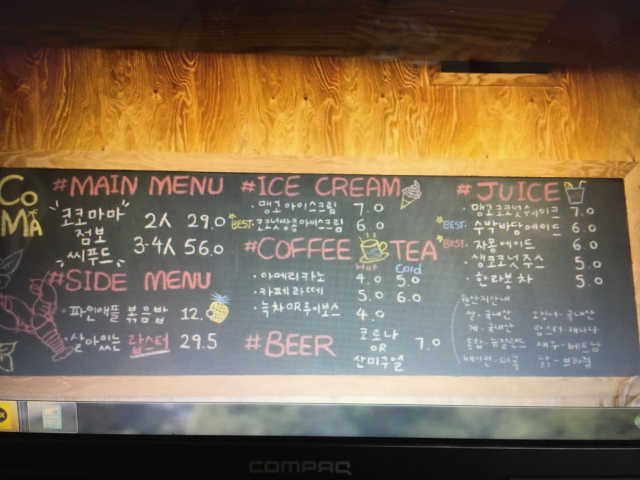 Co
MA
#MAIN MENU
코코마마
점보
씨푸드
2人 29.0
3-4人 56.0
#SIDE MENU
·파인애플 볶음밥 12.0
·살아있는 랍스터 29.5
#ICE CREAM
·망고아이스크림 7.0
BEST. 코코넛쌀국아이스크림 6.0
#COFFEE TEA
Hot Cold
·아메리카노 4.0 5.0
·카페라떼 5.0 6.0
·녹차OR루이보스 4.0
#BEER
코로나
OR
산미구엘
7.0
#JUICE
·망고코코넛쉐이크 7.0
BEST. 수박바당에이드 6.0
BEST. 자몽에이드 6.0
생코코넛주스 5.0
한라봉차 5.0
원산지안내
쌀·국내산
계·국내산
새우·베트남
COMPAQ